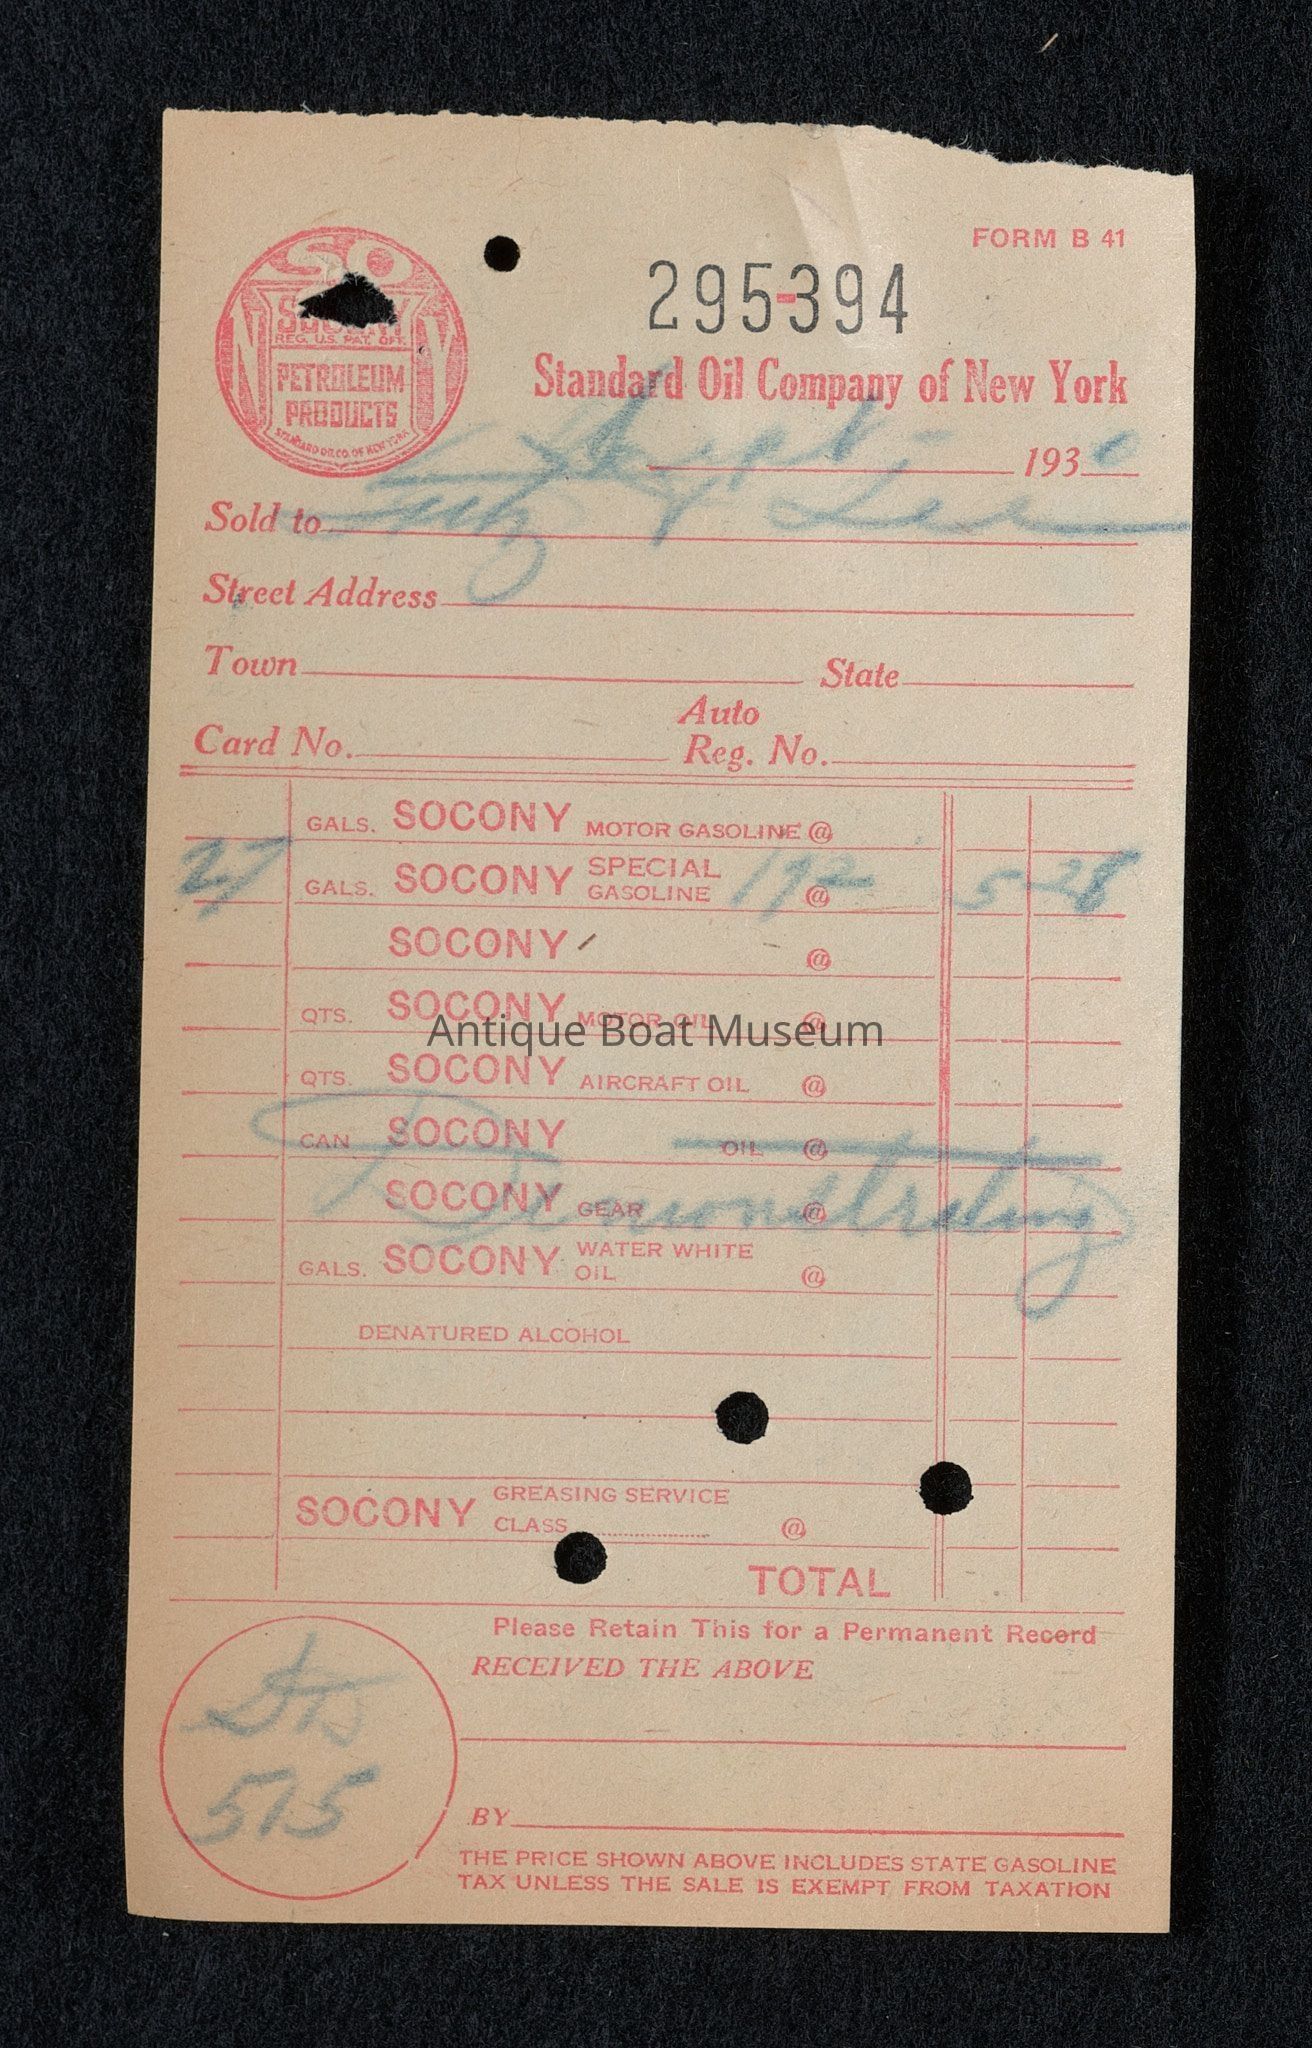 FORM B 41
295-394
SO
SOCONY
REG. U.S. PAT. OFF.
PETROLEUM
PRODUCTS
STANDARD OIL CO. OF NEW YORK
Standard Oil Company of New York
Sept 1930
Sold to
Street Address
Town State
Auto
Card No. Reg. No.
GALS. SOCONY MOTOR GASOLINE @
27 GALS. SOCONY SPECIAL GASOLINE 192 @ 5 28
SOCONY @
QTS. SOCONY MOTOR OIL @
Antique Boat Museum
QTS. SOCONY AIRCRAFT OIL @
CAN SOCONY OIL @
Demonstrating
SOCONY GEAR @
GALS. SOCONY WATER WHITE OIL @
DENATURED ALCOHOL
SOCONY GREASING SERVICE
CLASS @
TOTAL
Please Retain This for a Permanent Record
RECEIVED THE ABOVE
515
BY
THE PRICE SHOWN ABOVE INCLUDES STATE GASOLINE
TAX UNLESS THE SALE IS EXEMPT FROM TAXATION